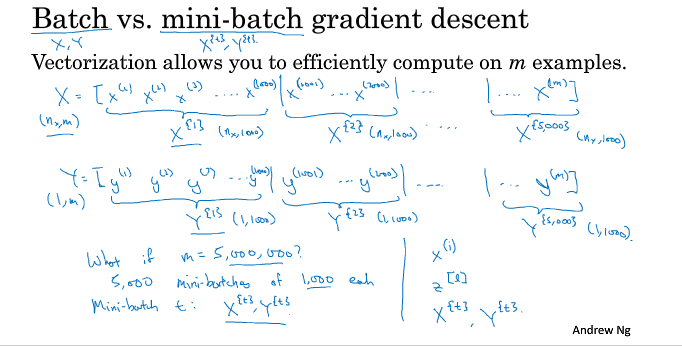 Batch vs. mini-batch gradient descent
X, Y    X^{t}, Y^{t}.
Vectorization allows you to efficiently compute on m examples.
X = [x^(1) x^(2) x^(3) .... x^(1000) | x^(1001) ... x^(2000) | .... | .... x^(m)]
(n_x, m)
X^{1} (n_x, 1000)    X^{2} (n_x, 1000)    ....    X^{5,000} (n_x, 1000)
Y = [y^(1) y^(2) y^(3) ... y^(1000) | y^(1001) ... y^(2000) | .... | ... y^(m)]
(1, m)
Y^{1} (1, 1000)    Y^{2} (1, 1000)    Y^{5,000} (1, 1000).
What if m = 5,000,000?    x^(i)
5,000 mini-batches of 1,000 each    z^[l]
Mini-batch t: X^{t}, Y^{t}    X^{t}, Y^{t}.
Andrew Ng